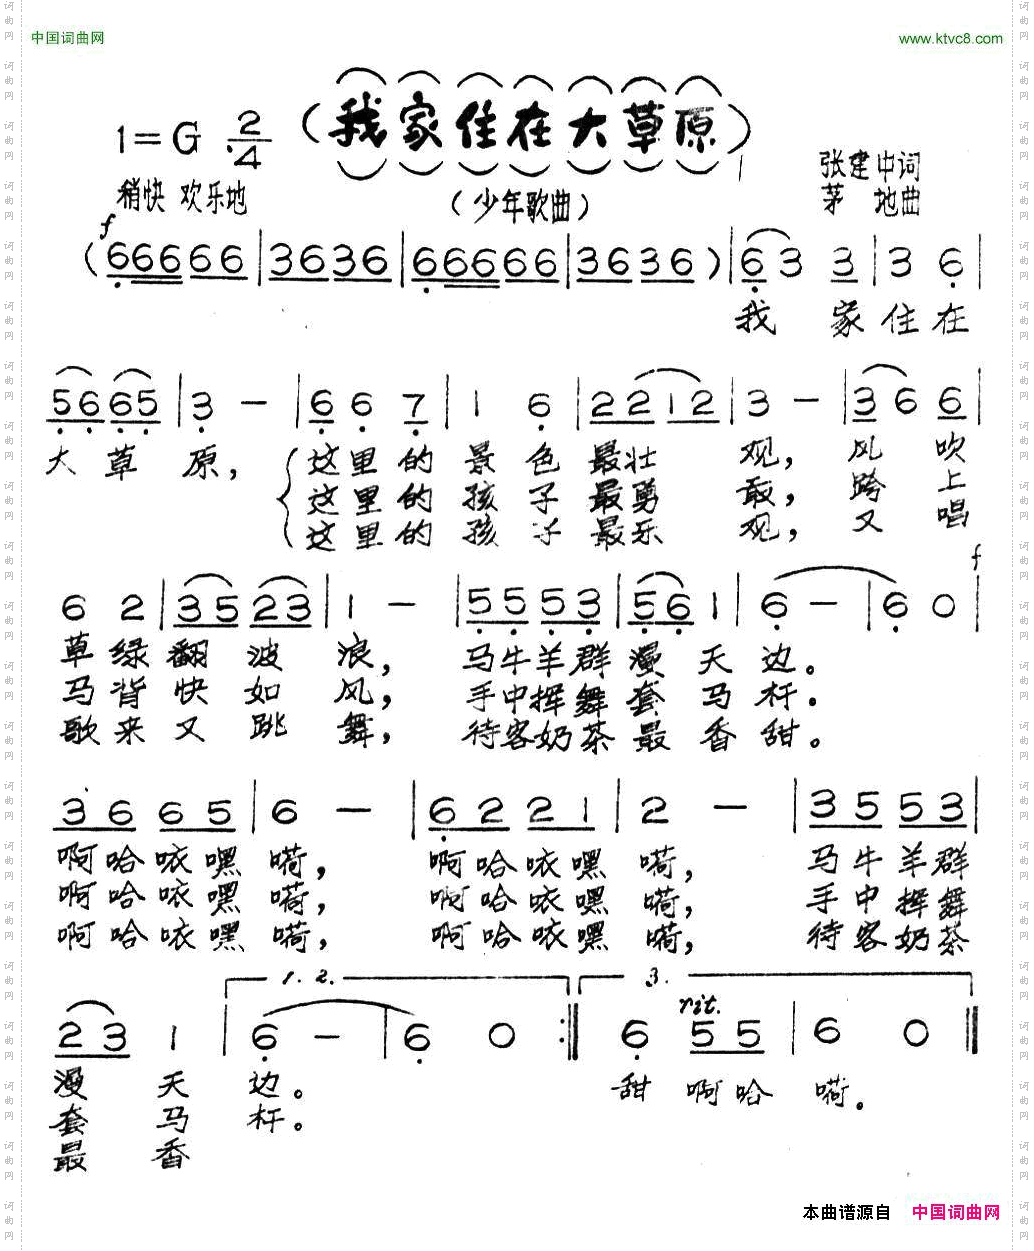 中国词曲网
www.ktvc8.com
1=G 2/4
(我家住在大草原)
张建中词
稍快 欢乐地
(少年歌曲)
茅 地曲
f
(66666 66 | 3636 | 66666 66 | 3636) | 63 3 | 3 6 |
我 家 住 在
56 65 | 3 - | 6 6 7 | 1 6 | 22 12 | 3 - | 3 6 6 |
大 草 原, 这 里 的 景 色 最 壮 观, 风 吹
这 里 的 孩 子 最 勇 敢, 跨 上
这 里 的 孩 子 最 乐 观, 又 唱
f
6 2 | 35 23 | 1 - | 55 53 | 56 1 | 6 - | 6 0 |
草 绿 翻 波 浪, 马 牛 羊 群 漫 天 边。
马 背 快 如 风, 手 中 挥 舞 套 马 杆。
歌 来 又 跳 舞, 待 客 奶 茶 最 香 甜。
36 65 | 6 - | 62 21 | 2 - | 35 53 |
啊 哈 咴 嘿 嗬, 啊 哈 咴 嘿 嗬, 马 牛 羊 群
啊 哈 咴 嘿 嗬, 啊 哈 咴 嘿 嗬, 手 中 挥 舞
啊 哈 咴 嘿 嗬, 啊 哈 咴 嘿 嗬, 待 客 奶 茶
1. 2. 3.
rit.
23 1 | 6 - | 6 0 :| 6 55 | 6 0 |
漫 天 边。 甜 啊 哈 嗬。
套 马 杆。
最 香
本曲谱源自 中国词曲网